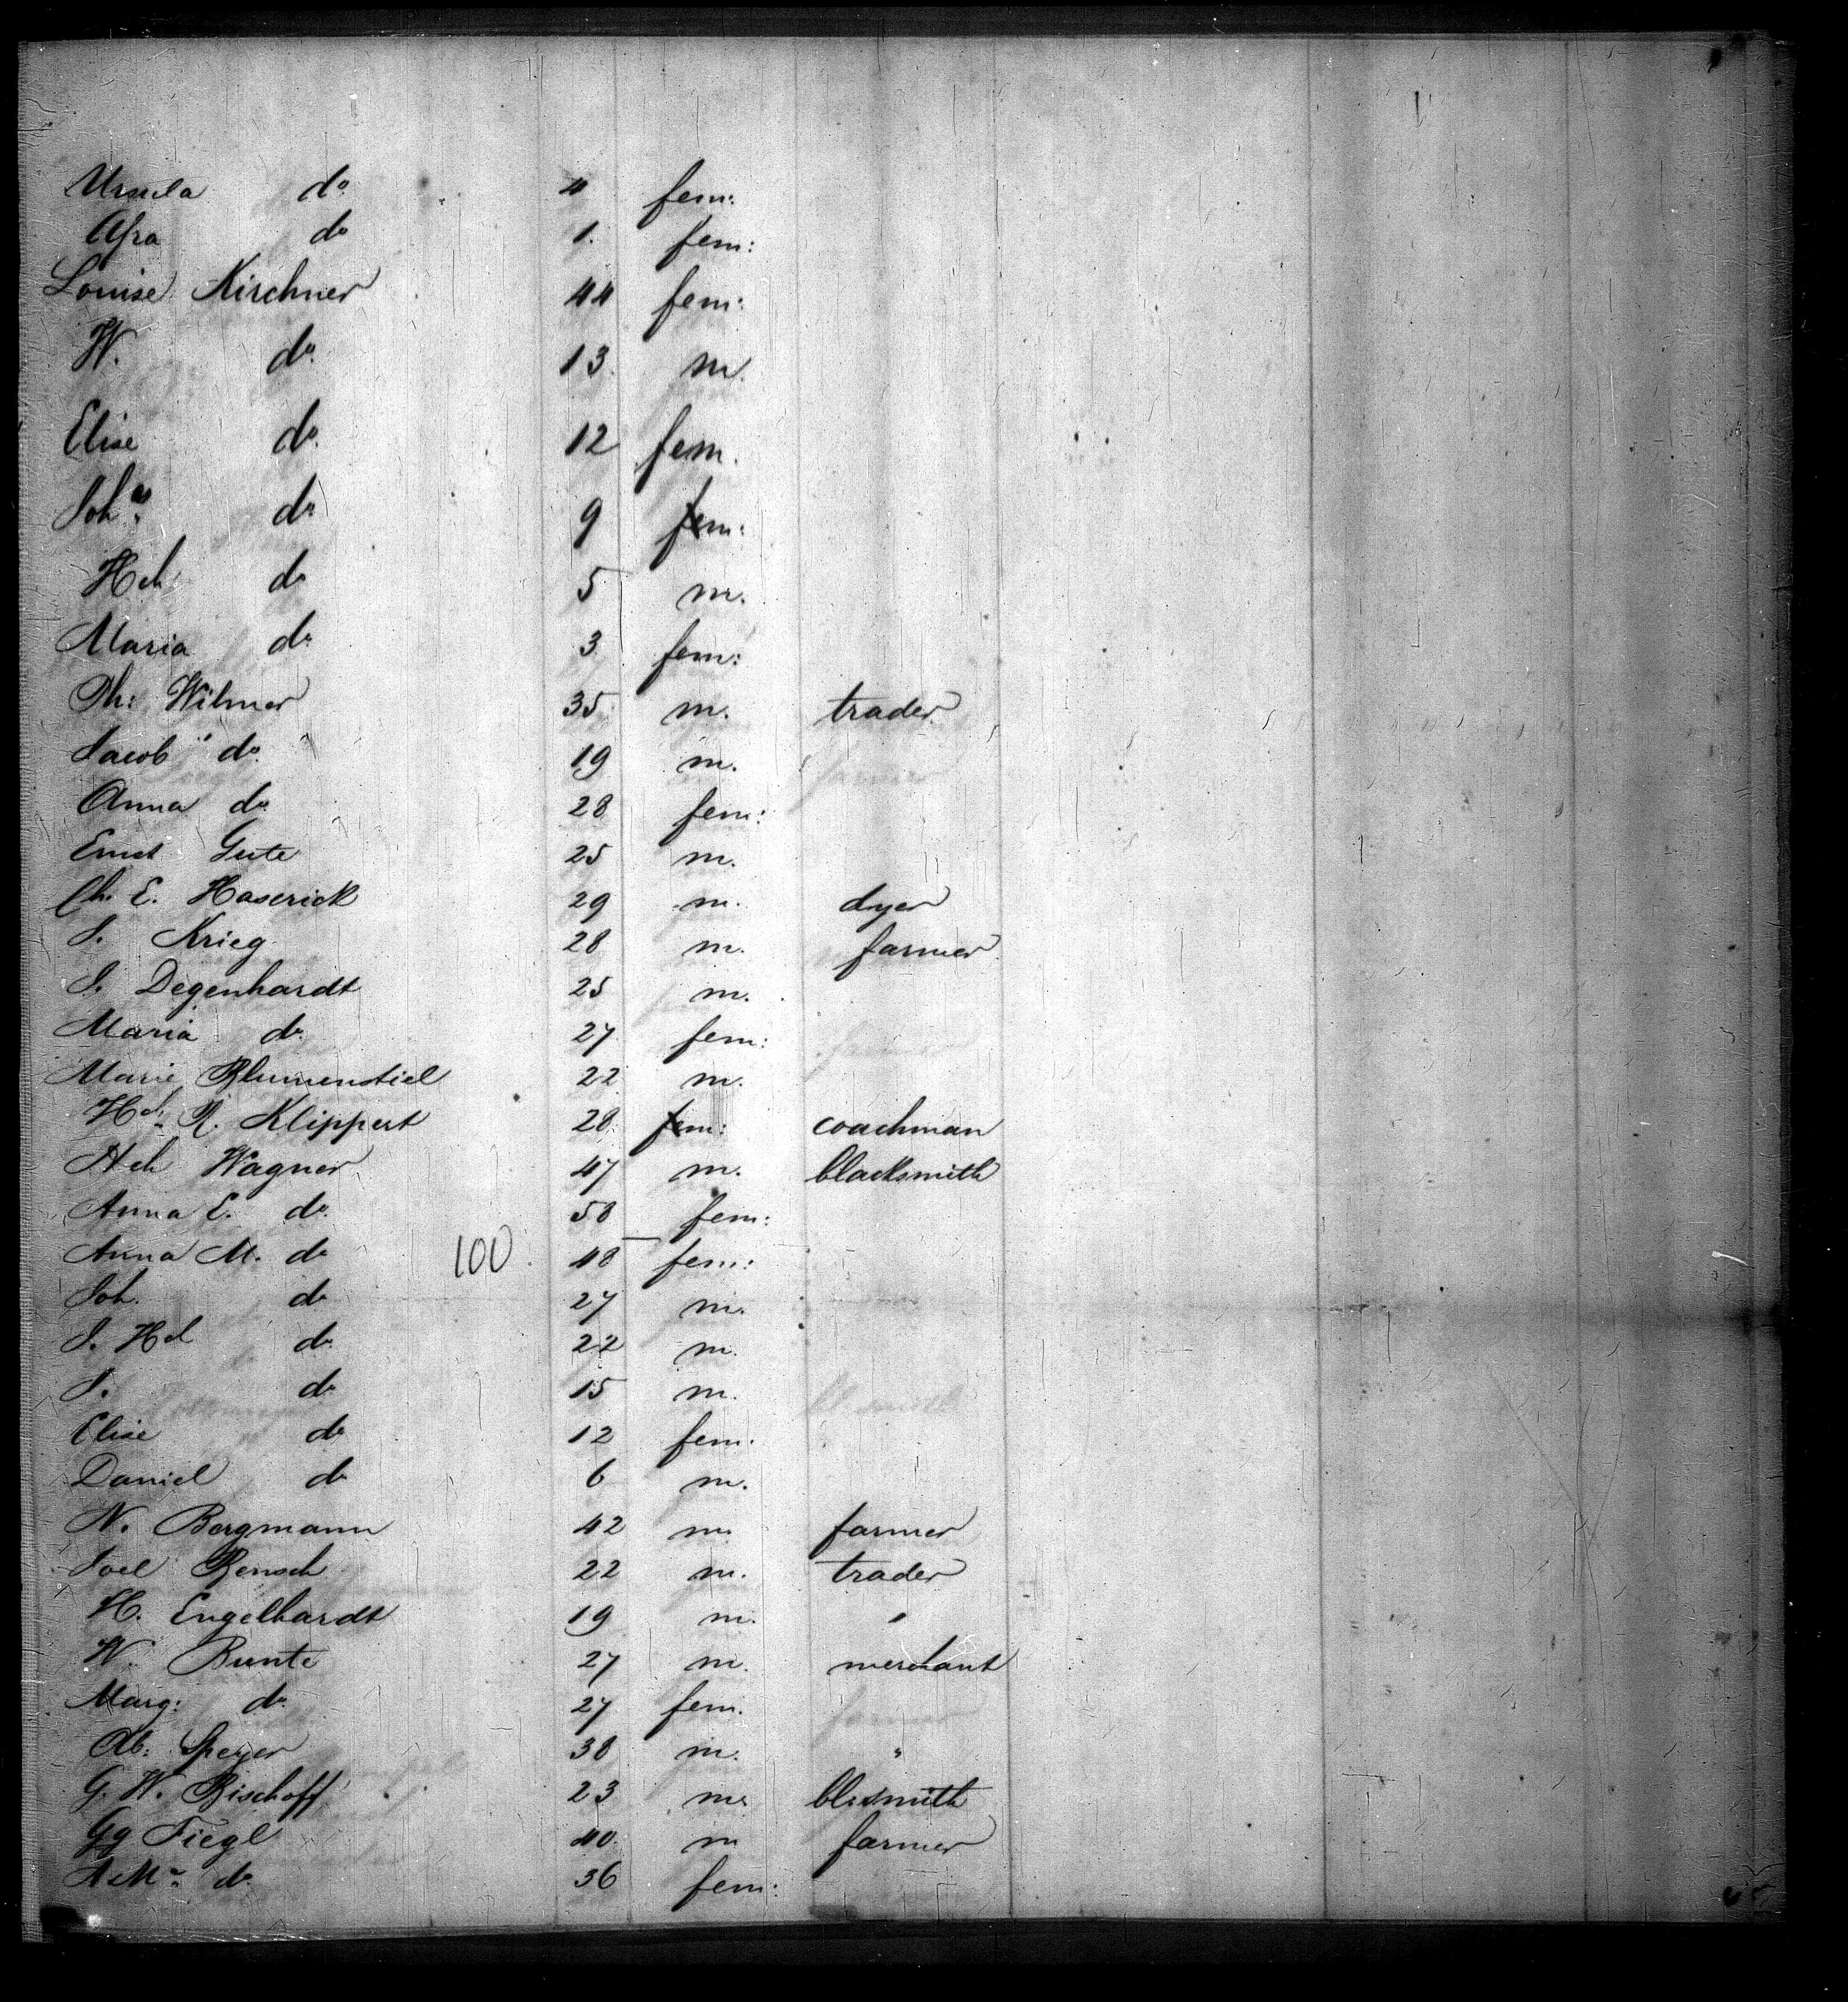 Ursula do 4 fem:
Afra do 1. fem:
Louise Kirchner 44 fem:
W. do 13. m.
Elise do 12 fem.
Johs. do 9 fem:
Hch do 5 m.
Maria do 3 fem:
Th: Wilmer 35 m. trader
Jacob do 19 m.
Anna do 28 fem:
Ernst Gute 25 m.
Ch. E. Haserick 29 m. dyer
J. Krieg 28 m. farmer
J. Degenhardt 25 m.
Maria do 27 fem:
Marie Blumenstiel 22 m.
Hch. R. Klippert 28 fem: coachman
Hch Wagner 47 m. blacksmith
Anna E. do 58 fem:
Anna M. do 100 48 fem:
Joh. do 27 m.
J. Hch do 22 m.
J. do 15 m.
Elise do 12 fem.
Daniel do 6 m.
N. Bergmann 42 m. farmer
Joel Rensch 22 m. trader
H. Engelhardt 19 m. "
W. Bunte 27 m. merchant
Marg: do 27 fem.
Ab: Speyer 38 m. "
G. W. Bischoff 23 m. blksmith
Gg Fiegl 40 m farmer
A Ma. do 36 fem: